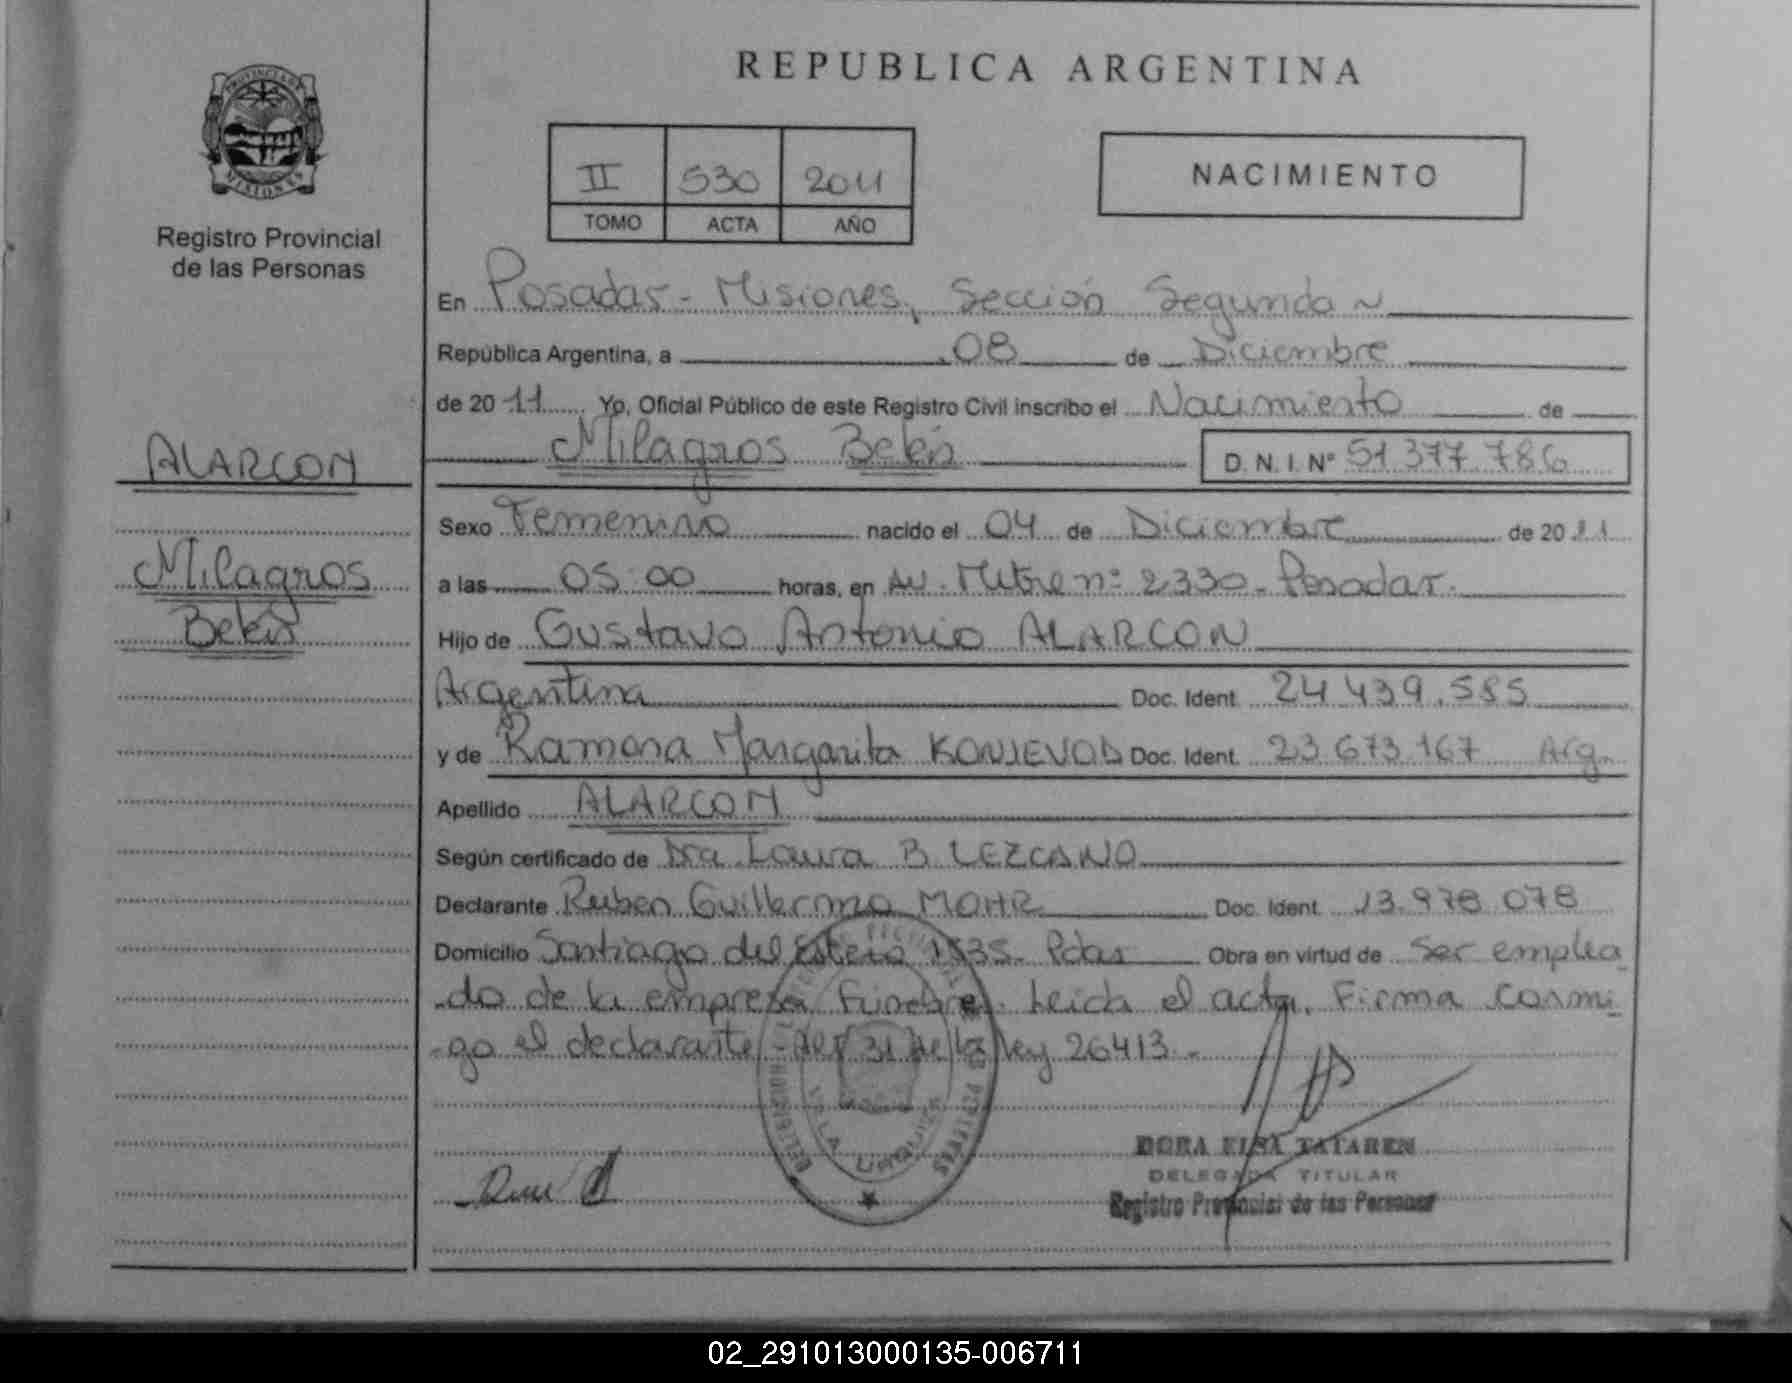 REPUBLICA ARGENTINA
PROVINCIA DE
MISIONES
Registro Provincial
de las Personas
II 530 2011
TOMO ACTA AÑO
NACIMIENTO
En Posadas - Misiones, Sección Segunda
República Argentina, a 08 de Diciembre
de 2011 Yo, Oficial Público de este Registro Civil inscribo el Nacimiento de
Milagros Belén D.N.I. Nº 51 377 786
ALARCON
Milagros
Belén
Sexo Femenino nacido el 04 de Diciembre de 2011
a las 05:00 horas, en Av. Mitre nº 2330 - Posadas.
Hijo de Gustavo Antonio ALARCON
Argentina Doc. Ident. 24 439.585
y de Ramona Margarita KONJEVOD Doc. Ident. 23 673 167 Arg.
Apellido ALARCON
Según certificado de Dra Laura B LEZCANO
Declarante Ruben Guillermo MOHR Doc. Ident. 13.978 078
Domicilio Santiago del Estero 1535 - Pdas Obra en virtud de ser emplea
do de la empresa Funebre. Leida el acta, Firma conmi
go el declarante - Art 31 de la ley 26413 -
VILLA URQUIZA
DORA ELSA TATAREN
DELEGADA TITULAR
Registro Provincial de las Personas
02_291013000135-006711